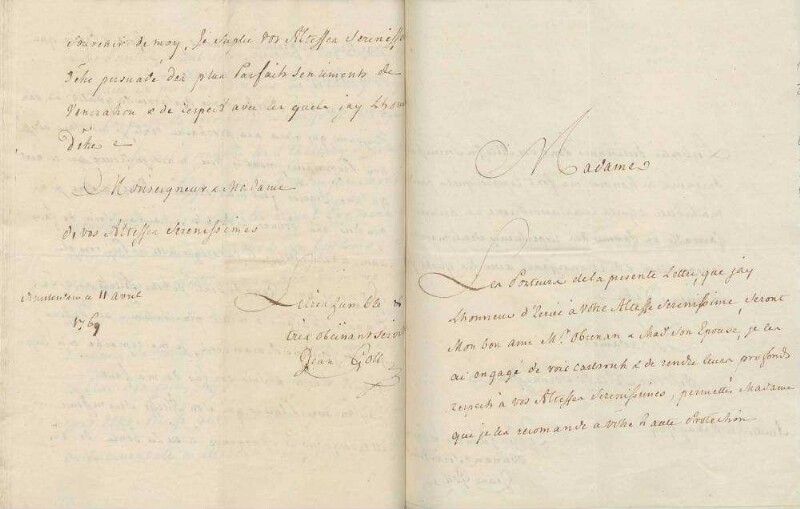 souvenir de moy, Je suplie vos Altesses Sereniss.
d'être persuadé des plus Parfaits sentiments de
Veneration & de respect avec les quels jay Lhon
d'être
Monseigneur & Madame
de vos Altesses Serenissimes
Amsterdam ce 11 avril
1769
Le très humble &
très obeissant servi
Jean Goll
Madame
Les Porteurs de la presente Lettre, que j'ay
Lhonneur d'Ecrire à Vôtre Altesse Serenissime, seront
Mon bon ami Mr. & Mad. son Epouse, je les
ai engagé de voir Carlsruh & de rendre leurs profonds
respects à vos Altesses Serenissimes, permettés Madame
que je les recomande a Vôtre haute Protection